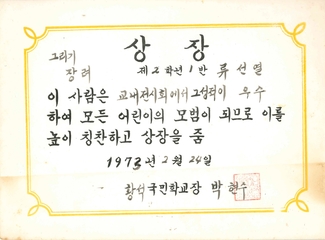 상 장
그리기
장려
제2학년1반 류선열
이 사람은 교내전시회에서 그성적이 우수
하여 모든 어린이의 모범이 되므로 이를
높이 칭찬하고 상장을 줌
1973년 2월 24일
국민학교장 박현수